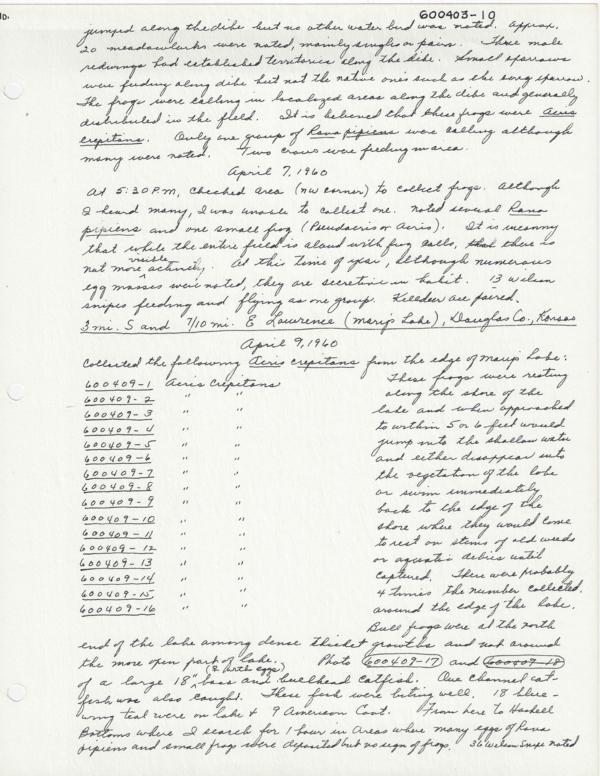 600403-10
jumped along the dike but no other water bird was noted. Approx.
20 meadowlarks were noted, mainly singles or pairs. Three male
redwings had established territories along the dike. Small sparrows
were feeding along dike but not the native ones such as the song sparrow.
The frogs were calling in localized areas along the dike and generally
distributed in the field. It is believed that these frogs were Acris
crepitans. Only one group of Rana pipiens were calling although
many were noted. Two crows were feeding in area.
April 7, 1960
At 5:30 P.M, checked area (NW corner) to collect frogs. Although
I heard many, I was unable to collect one. Noted several Rana
pipiens and one small frog (Pseudacris or Acris). It is uncanny
that while the entire field is aloud with frog calls, that there is
not more visible activity. At this time of year, although numerous
egg masses were noted, they are secretive in habit. 13 Wilson
snipes feeding and flying as one group. Killdeer are paired.
3 mi. S and 7/10 mi. E Lawrence (Mary's Lake), Douglas Co., Kansas
April 9, 1960
Collected the following Acris crepitans from the edge of Mary's Lake:
600409-1 Acris Crepitans These frogs were resting
600409-2 " " along the shore of the
600409-3 " " lake and when approached
600409-4 " " to within 5 or 6 feet would
600409-5 " " jump into the shallow water
600409-6 " " and either disappear into
600409-7 " " the vegetation of the lake
600409-8 " " or swim immediately
600409-9 " " back to the edge of the
600409-10 " " shore where they would come
600409-11 " " to rest on stems of old weeds
600409-12 " " or aquatic debris until
600409-13 " " captured. There were probably
600409-14 " " 4 times the number collected
600409-15 " " around the edge of the lake.
600409-16 " " Bull frogs were at the north
end of the lake among dense thicket growths and not around
the more open part of lake. Photo 600409-17 and 600409-18
of a large 18" (& with eggs) bass and bullhead catfish. One channel cat-
fish was also caught. These fish were biting well. 18 blue-
wing teal were on lake & 9 American Coot. From here to Haskell
Bottoms where I search for 1 hour in areas where many eggs of Rana
pipiens and small frogs were deposited but no sign of frogs. 36 Wilson Snipe noted